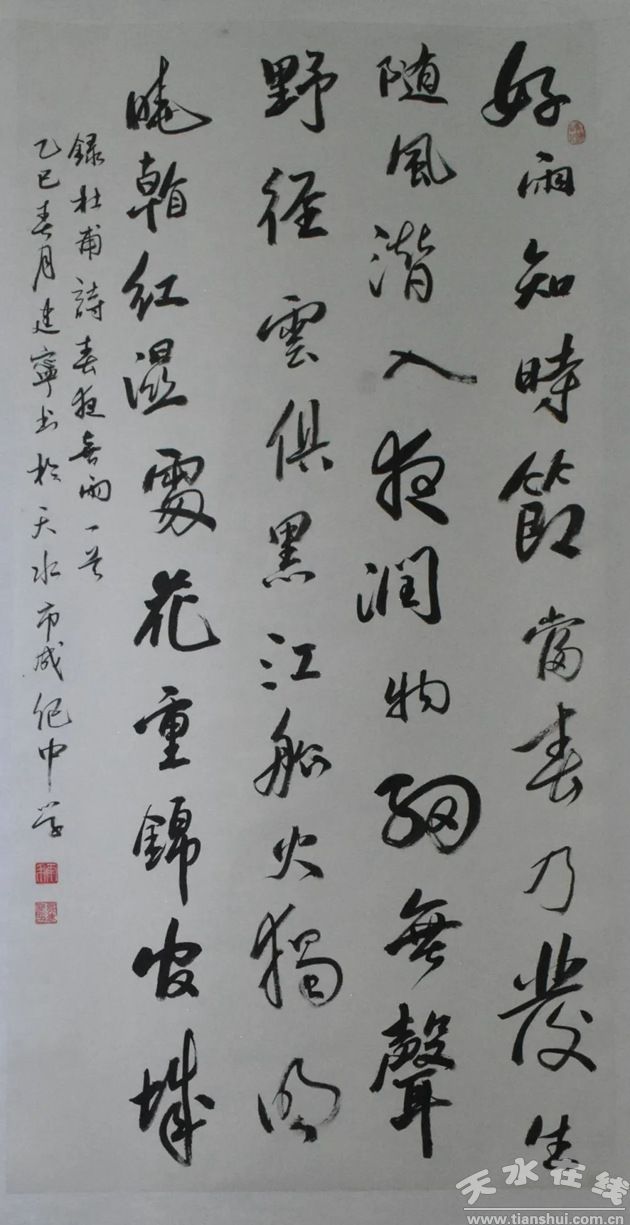 好雨知時節當春乃發生
随風潛入夜潤物細無聲
野徑雲俱黑江船火獨明
曉看紅濕處花重錦官城
録杜甫詩春夜喜雨一首
乙巳春月建寧书於天水市成纪中学
天水在线
www.tianshui.com.cn